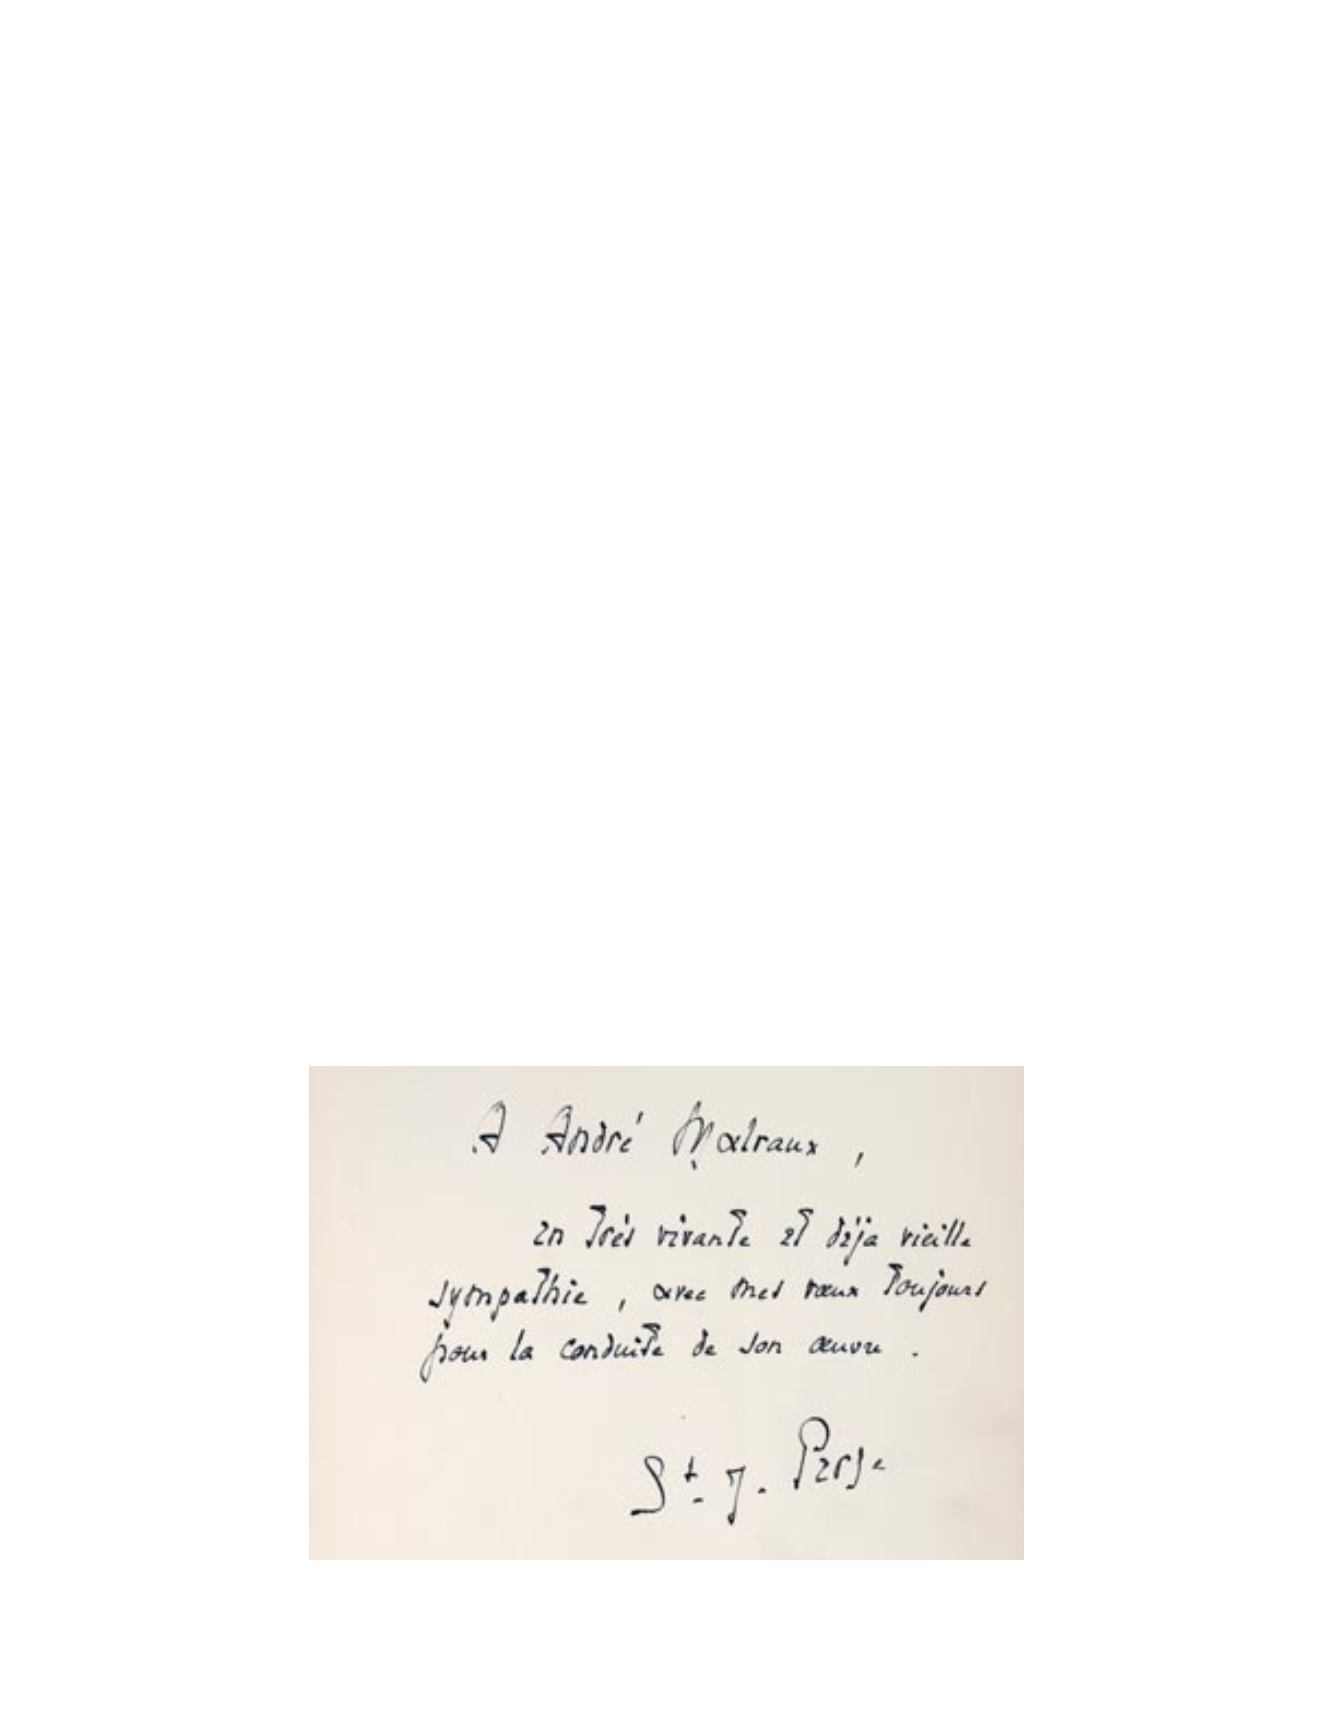 A André Malraux,
en très vivante et déja vieille
sympathie, avec mes vœux toujours
pour la conduite de son œuvre.
St. J. Perse